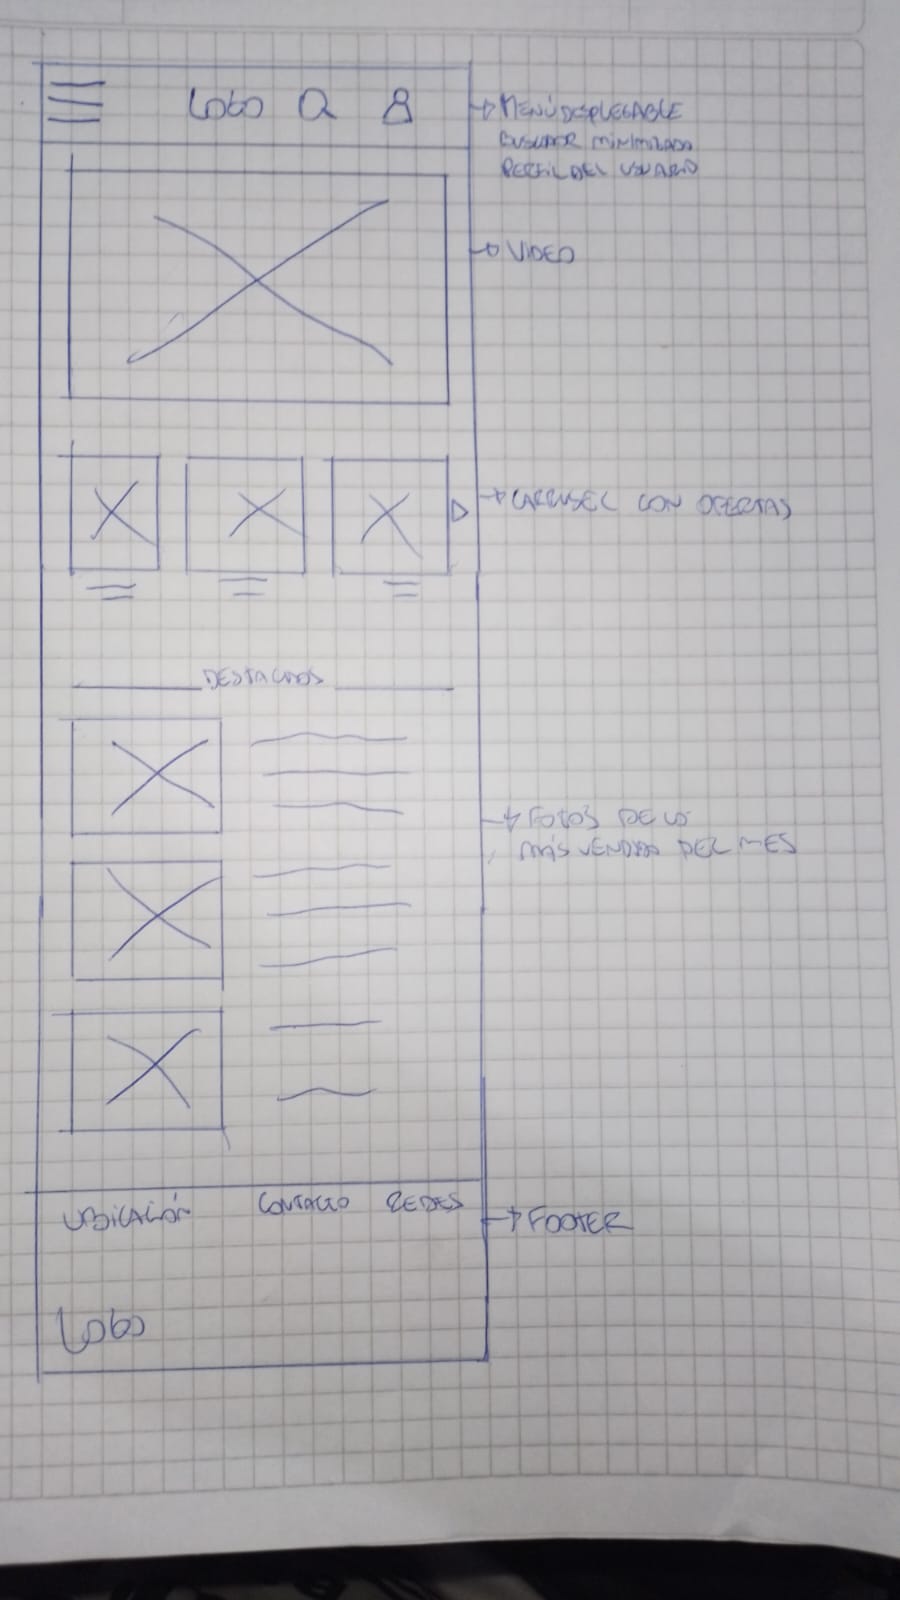 Logo
MENÚ DESPLEGABLE
BUSCADOR MINIMIZADO
PERFIL DEL USUARIO
VIDEO
CARRUSEL CON OFERTAS
DESTACADOS
FOTOS DE LO
MÁS VENDIDO DEL MES
UBICACIÓN CONTACTO REDES
FOOTER
Logo